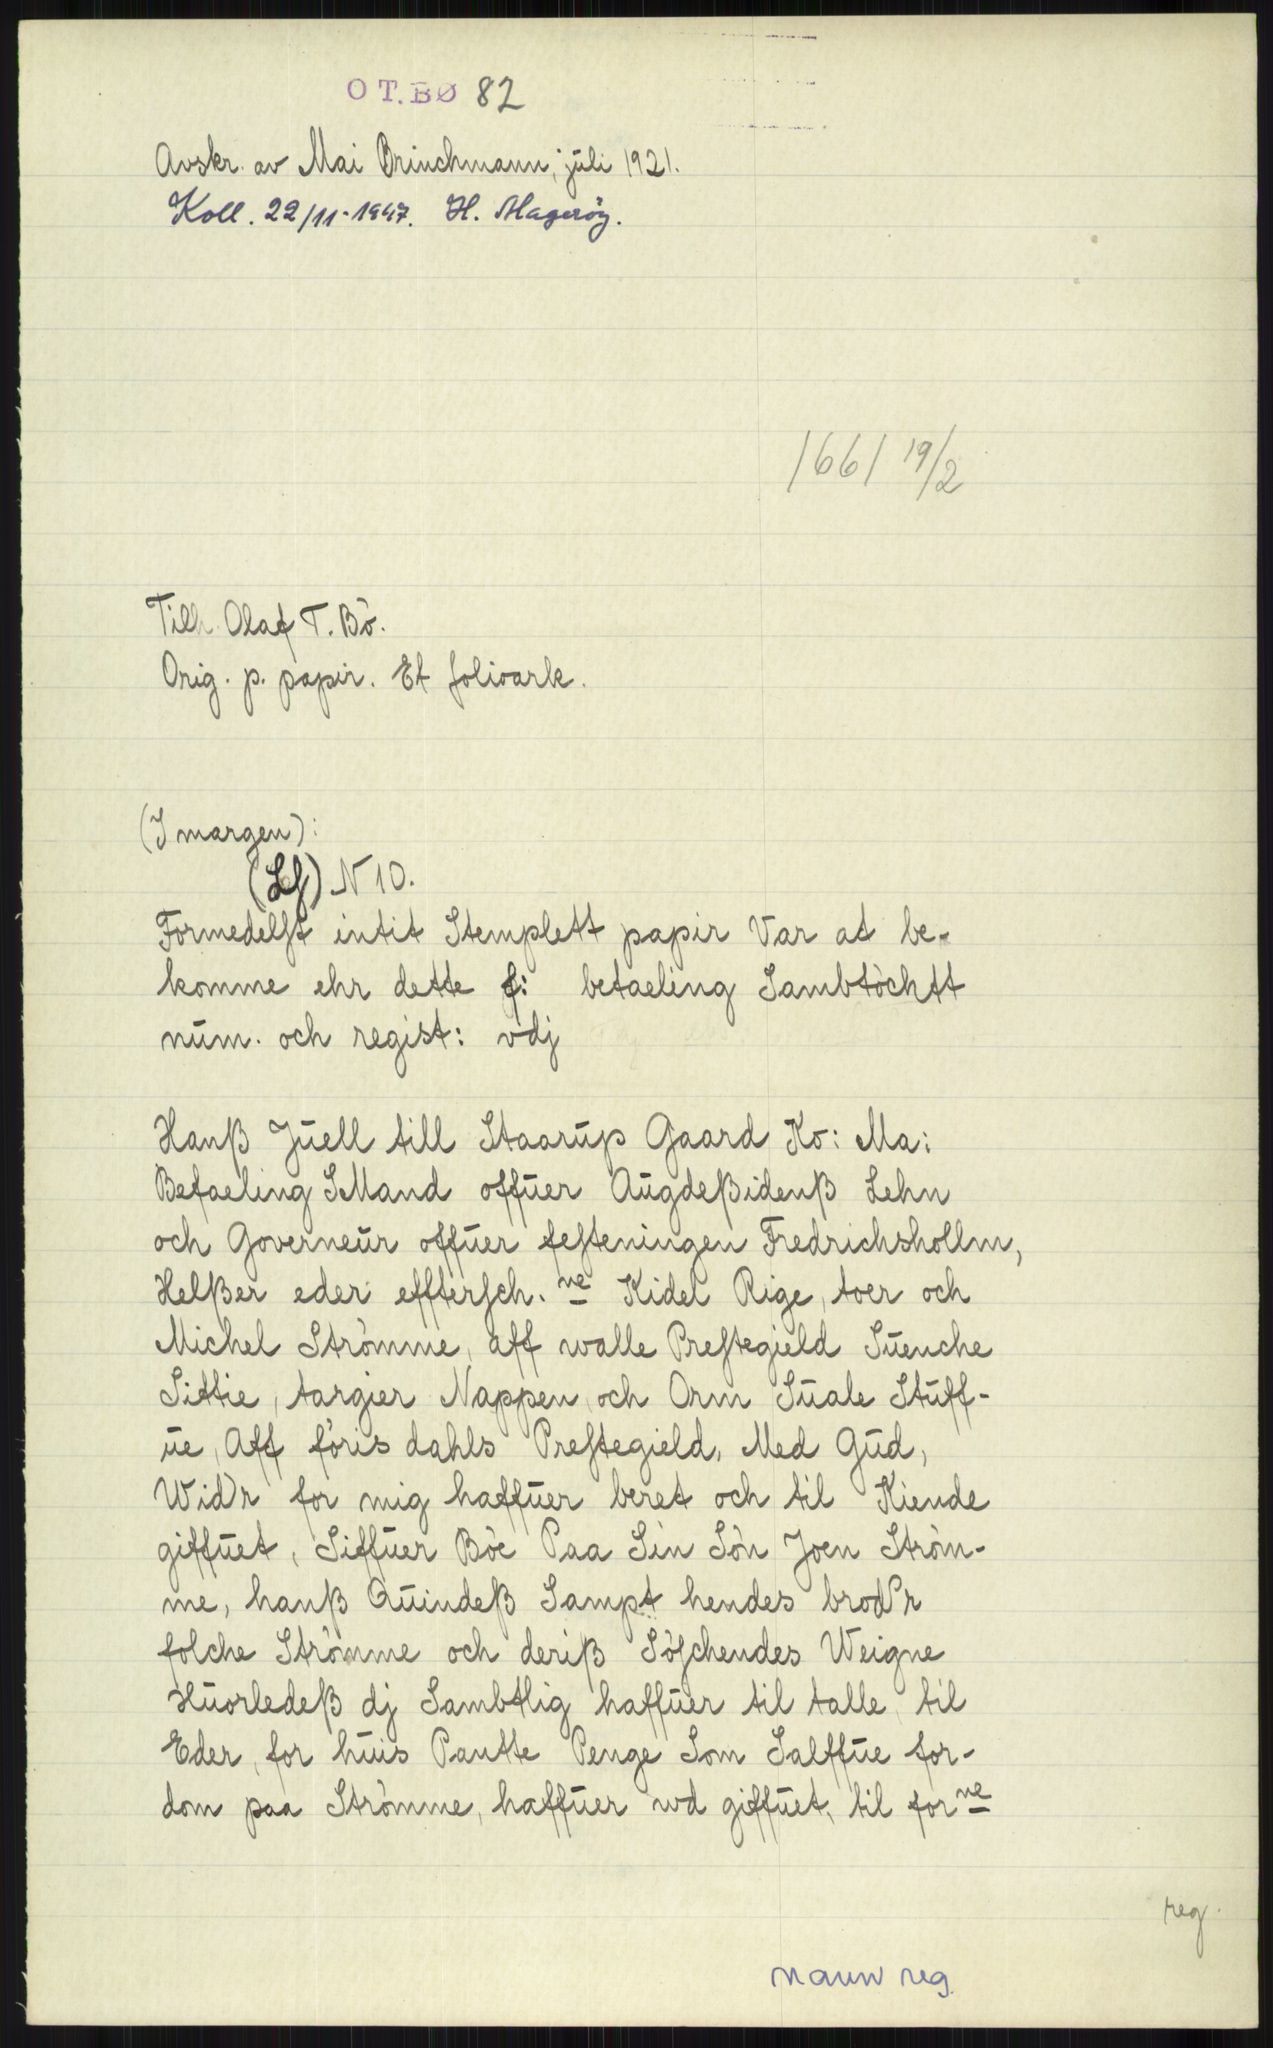 O T. BØ 82
Avskr. av Mai Brinchmann, juli 1921.
Koll. 22/11-1947. H. Magerøy.
1661 19/2
Tilh. Olaf T. Bö.
Orig. p. papir. Et folioark.
(I margen):
(Lf) N 10.
Formedelst intit Stemplett papir Var at be-
komme ehr dette f: betaeling Sambtöchtt
num. och regist: vdj
Hanß Juell till Staarup Gaard Ko: Ma:
Befaeling SMand offuer Augdeßidenß Lehn
och Governeur offuer festeningen Fredrichshollm,
Helßer eder efftersch. ne Kidel Rige, toer och
Michel Strömme, aff walle Prestegield Suenche
Sittie, targier Nappen, och Orm Suale Stuff-
ue, Aff föris dahls Prestegield, Med Gud,
Wid'r for mig haffuer beret och til Kiende
giffuet, Siffuer Böe Paa Sin Sön Joen Ström-
me, hanß Quindeß Sampt hendes brod'r
folche Strömme och deriß Söschendes Weigne
Huorledeß dj Sambtlig haffuer til talle, til
Eder, for huis Pantte Penge Som Salffue for-
dom paa Strömme, haffuer wd giffuet, til for ne
reg.
navn reg.